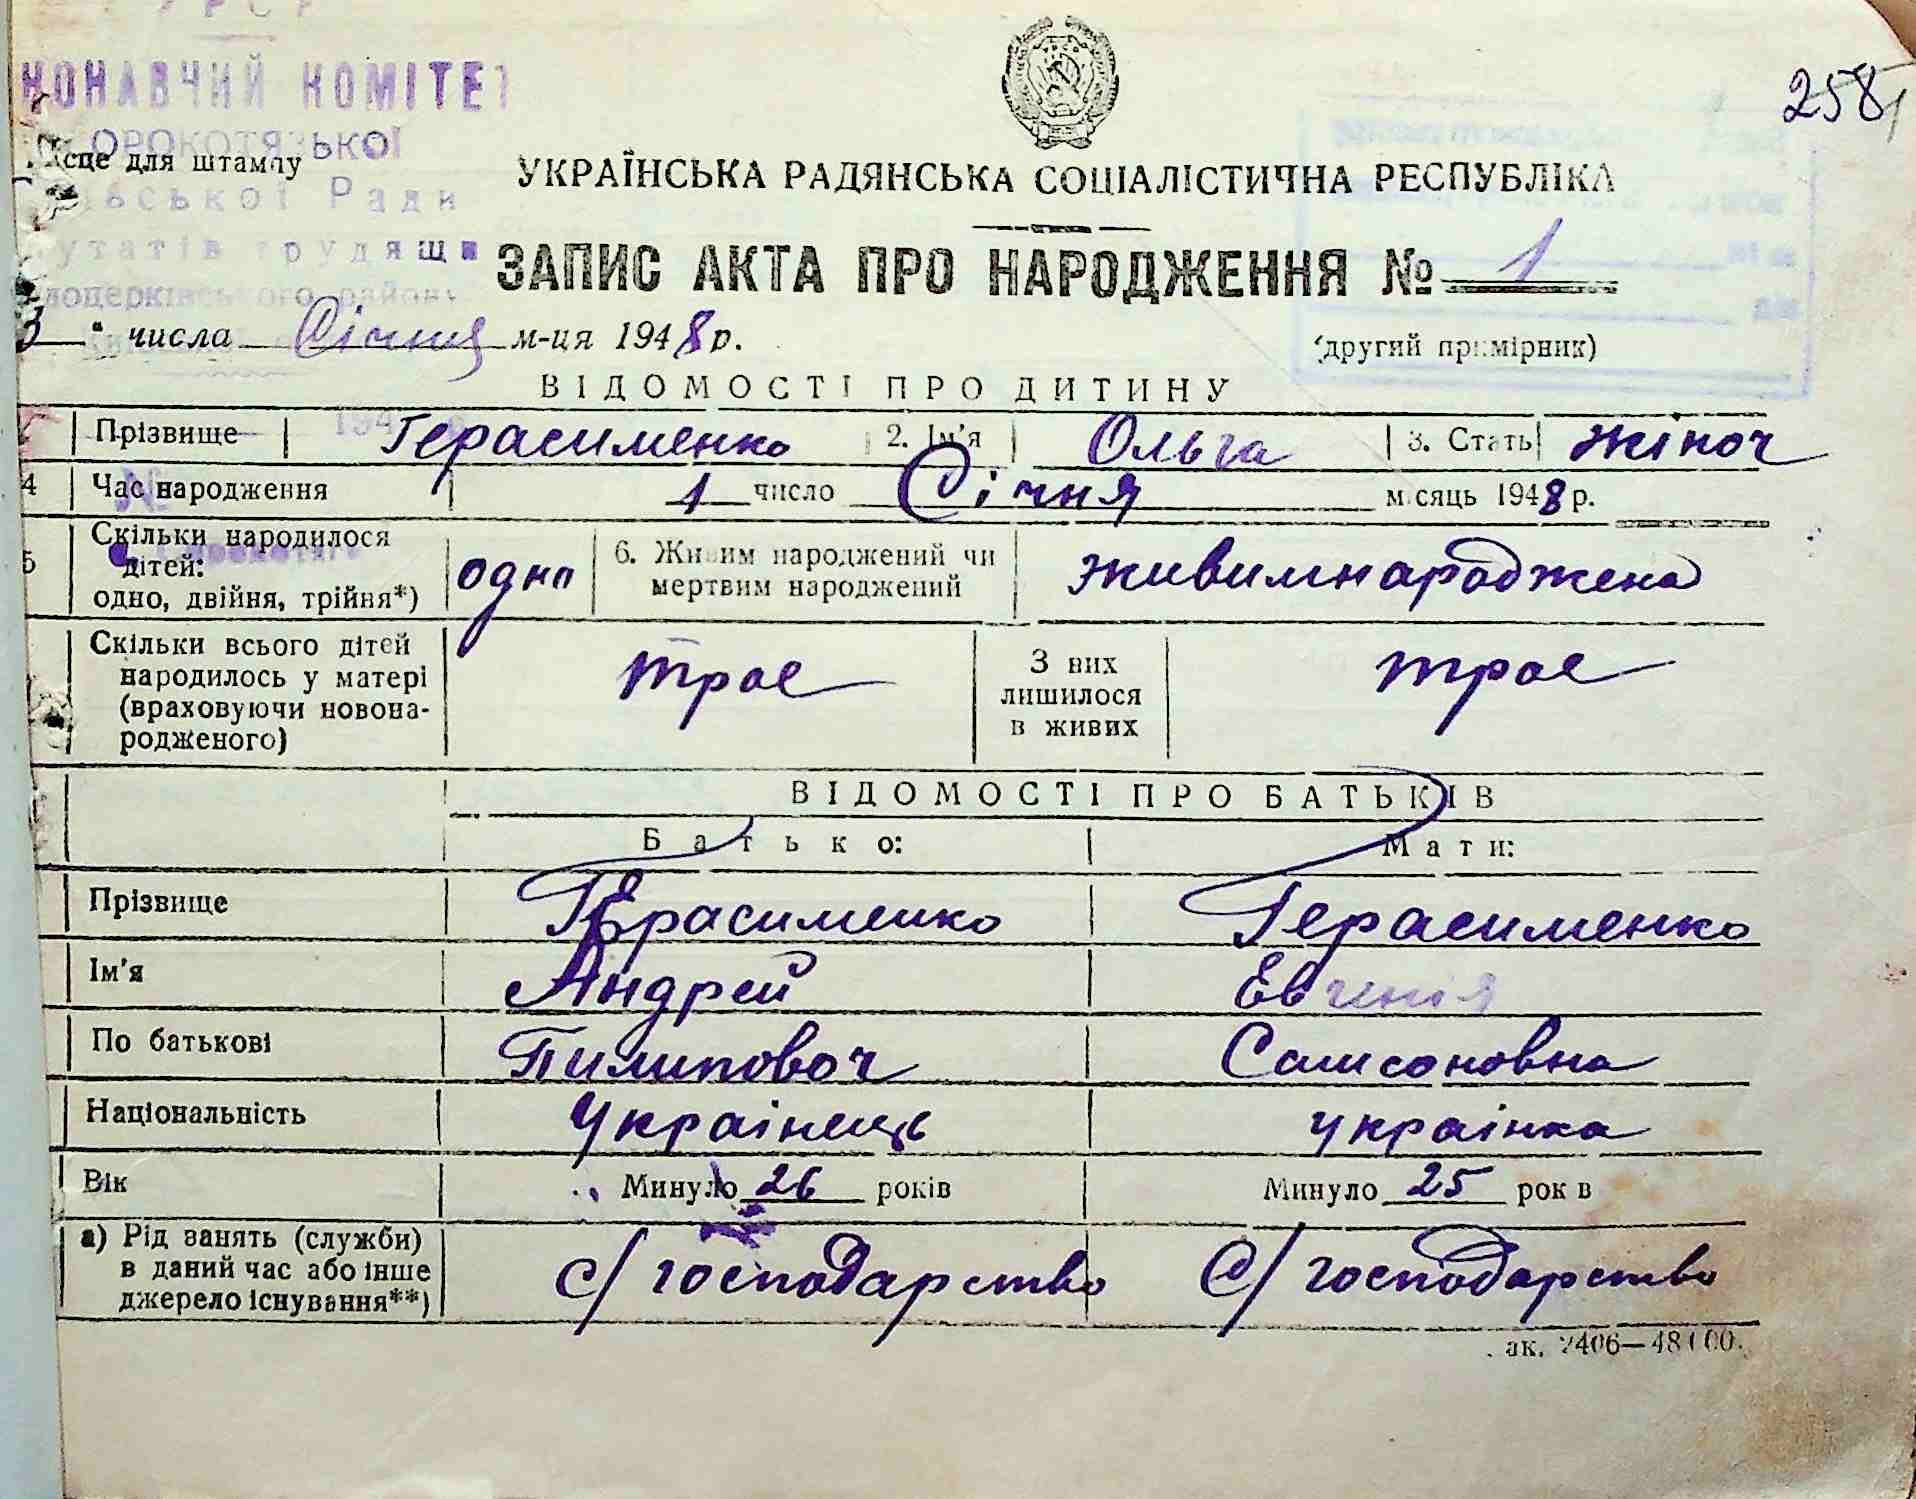 УРСР
КОНАВЧИЙ КОМІТЕТ
ОРОКОТЯЗЬКОЇ
сце для штампу
ської Ради
утатів трудящ
лоцерківського району
258
УКРАЇНСЬКА РАДЯНСЬКА СОЦІАЛІСТИЧНА РЕСПУБЛІКА
ЗАПИС АКТА ПРО НАРОДЖЕННЯ № 1
3 " числа Січня м-ця 1948 р.
(другий примірник)
ВІДОМОСТІ ПРО ДИТИНУ
Прізвище Герасименко 2. Ім'я Ольга 3. Стать жіноч
4 Час народження 1 число Січня місяць 1948 р.
5 Скільки народилося дітей: одно, двійня, трійня*) одна 6. Живим народжений чи мертвим народжений живимнароджена
Скільки всього дітей народилось у матері (враховуючи новонародженого) трое З них лишилося в живих трое
ВІДОМОСТІ ПРО БАТЬКІВ
Батько: Мати:
Прізвище Герасименко Герасименко
Ім'я Андрей Евгенія
По батькові Пилиповоч Самсоновна
Національність Украінець украінка
Вік Минуло 26 років Минуло 25 рок в
а) Рід занять (служби) в даний час або інше джерело існування**) с/господарство с/господарство
ак. 2406—48100.